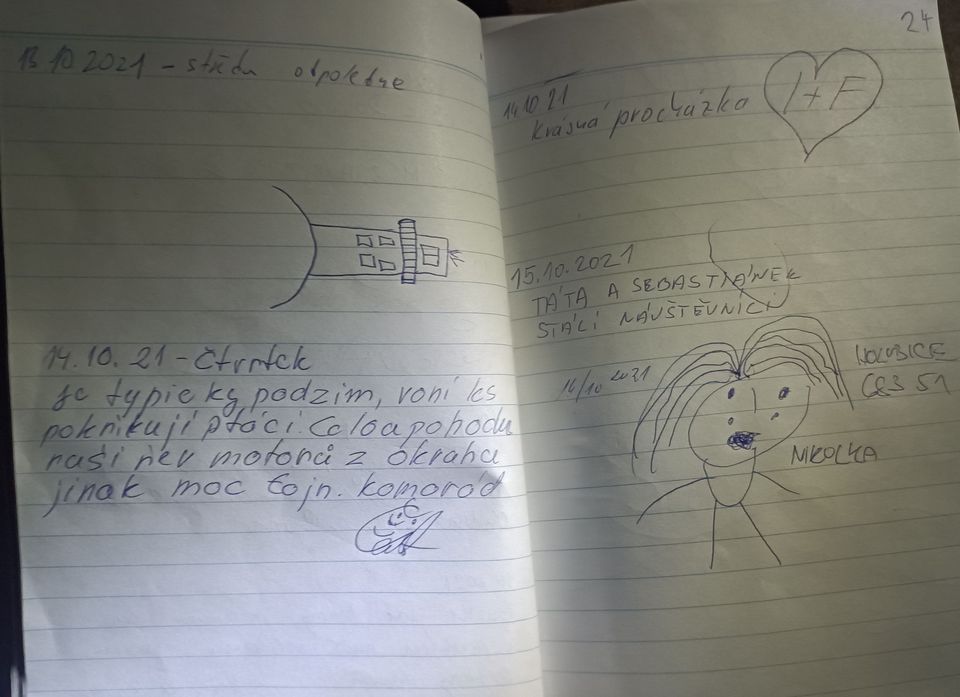 13 10 2021 - středa odpoledne
14.10. 21 - čtvrtek
Je typický podzim, voní les
pokřikují ptáci. Celou pohodu
ruší řev motorů z okruhu
jinak moc fajn. Komorád
24
14.10 21
Krásná procházka
I + F
15.10.2021
TÁTA A SEBASTIÁNEK
STÁLÍ NÁVŠTĚVNÍCI
16/10 2021
HOLUBICE
NIKOLKA